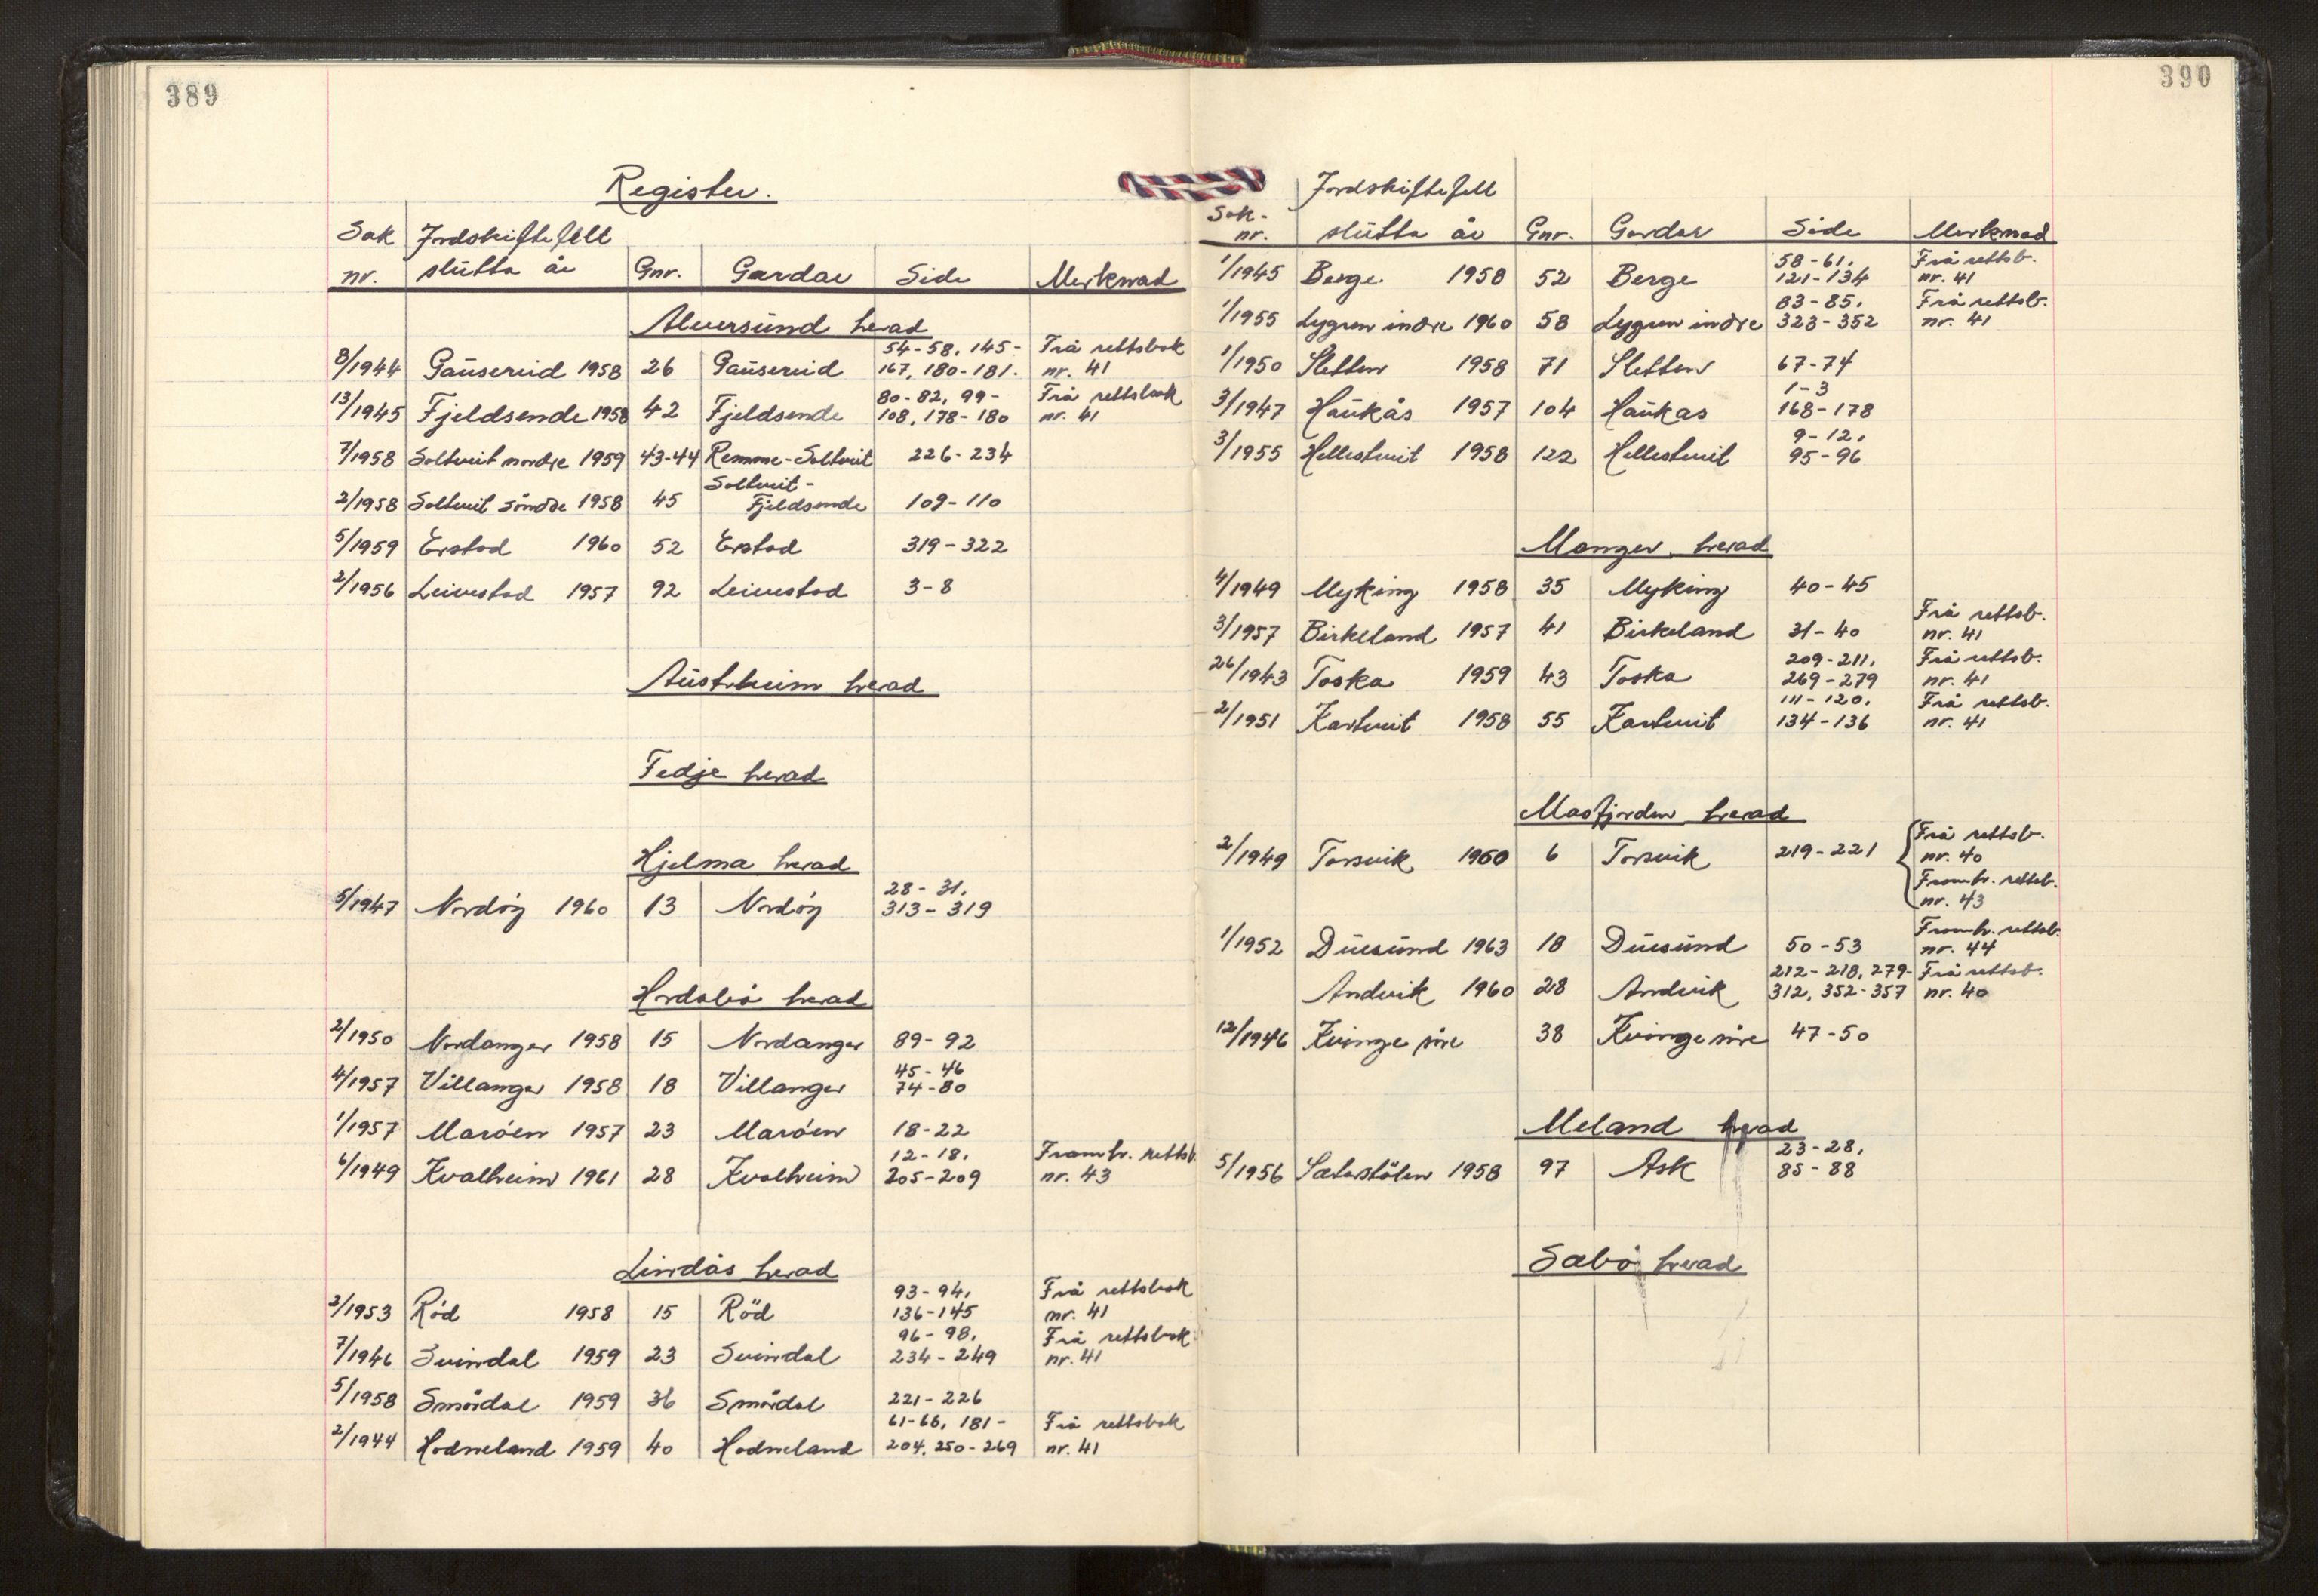 389
Register.
Sak Jordskiftefelt
nr. slutta år Gnr. Gardar Side Merknad
Alversund herad
8/1944 Gausereid 1958 26 Gausereid 54-58, 145-167, 180-181. Frå rettsbok nr. 41
13/1945 Fjeldsende 1958 42 Fjeldsende 80-82, 99-108, 178-180 Frå rettsbok nr. 41
7/1958 Soltveit nordre 1959 43-44 Remme-Soltveit 226-234
2/1958 Soltveit söndre 1958 45 Soltveit-Fjeldsende 109-110
5/1959 Erstad 1960 52 Erstad 319-322
2/1956 Leivestad 1957 92 Leivestad 3-8
Austrheim herad
Fedje herad
Hjelma herad
5/1947 Nordöy 1960 13 Nordöy 28-31, 313-319
Hordabö herad
2/1950 Nordanger 1958 15 Nordanger 89-92
4/1957 Villanger 1958 18 Villanger 45-46 74-80
1/1957 Maröen 1957 23 Maröen 18-22
6/1949 Kvalheim 1961 28 Kvalheim 12-18, 205-209 Framh. rettsb. nr. 43
Lindås herad
2/1953 Röd 1958 15 Röd 93-94, 136-145 Frå rettsbok nr. 41
7/1946 Svindal 1959 23 Svindal 96-98, 234-249 Frå rettsbok nr. 41
5/1958 Smördal 1959 36 Smördal 221-226
2/1944 Hodneland 1959 40 Hodneland 61-66, 181-204, 250-269 Frå rettsbok nr. 41
390
Jordskiftefelt
Sak-nr. slutta år Gnr. Gardar Side Merknad
1/1945 Berge 1958 52 Berge 58-61, 121-134 Frå rettsb. nr. 41
1/1955 Lygren indre 1960 58 Lygren indre 83-85, 323-352 Frå rettsb. nr. 41
1/1950 Sletten 1958 71 Sletten 67-74
3/1947 Haukås 1957 104 Haukas 1-3 168-178
3/1955 Hellestveit 1958 122 Hellestveit 9-12, 95-96
Manger herad
4/1949 Myking 1958 35 Myking 40-45
3/1957 Birkeland 1957 41 Birkeland 31-40 Frå rettsb. nr. 41
26/1943 Toska 1959 43 Toska 209-211, 269-279 Frå rettsb. nr. 41
2/1951 Kartveit 1958 55 Kartveit 111-120, 134-136 Frå rettsb. nr. 41
Masfjorden herad
2/1949 Torsvik 1960 6 Torsvik 219-221 Frå rettsb. nr. 40 Framh. rettsb. nr. 43
1/1952 Duesund 1963 18 Duesund 50-53 Framh. rettsb. nr. 44
Andvik 1960 28 Andvik 212-218, 279-312, 352-357 Frå rettsb. nr. 40
12/1946 Kvinge söre 38 Kvinge söre 47-50
Meland herad
5/1956 Sæterstölen 1958 97 Ask 23-28, 85-88
Sæbö herad